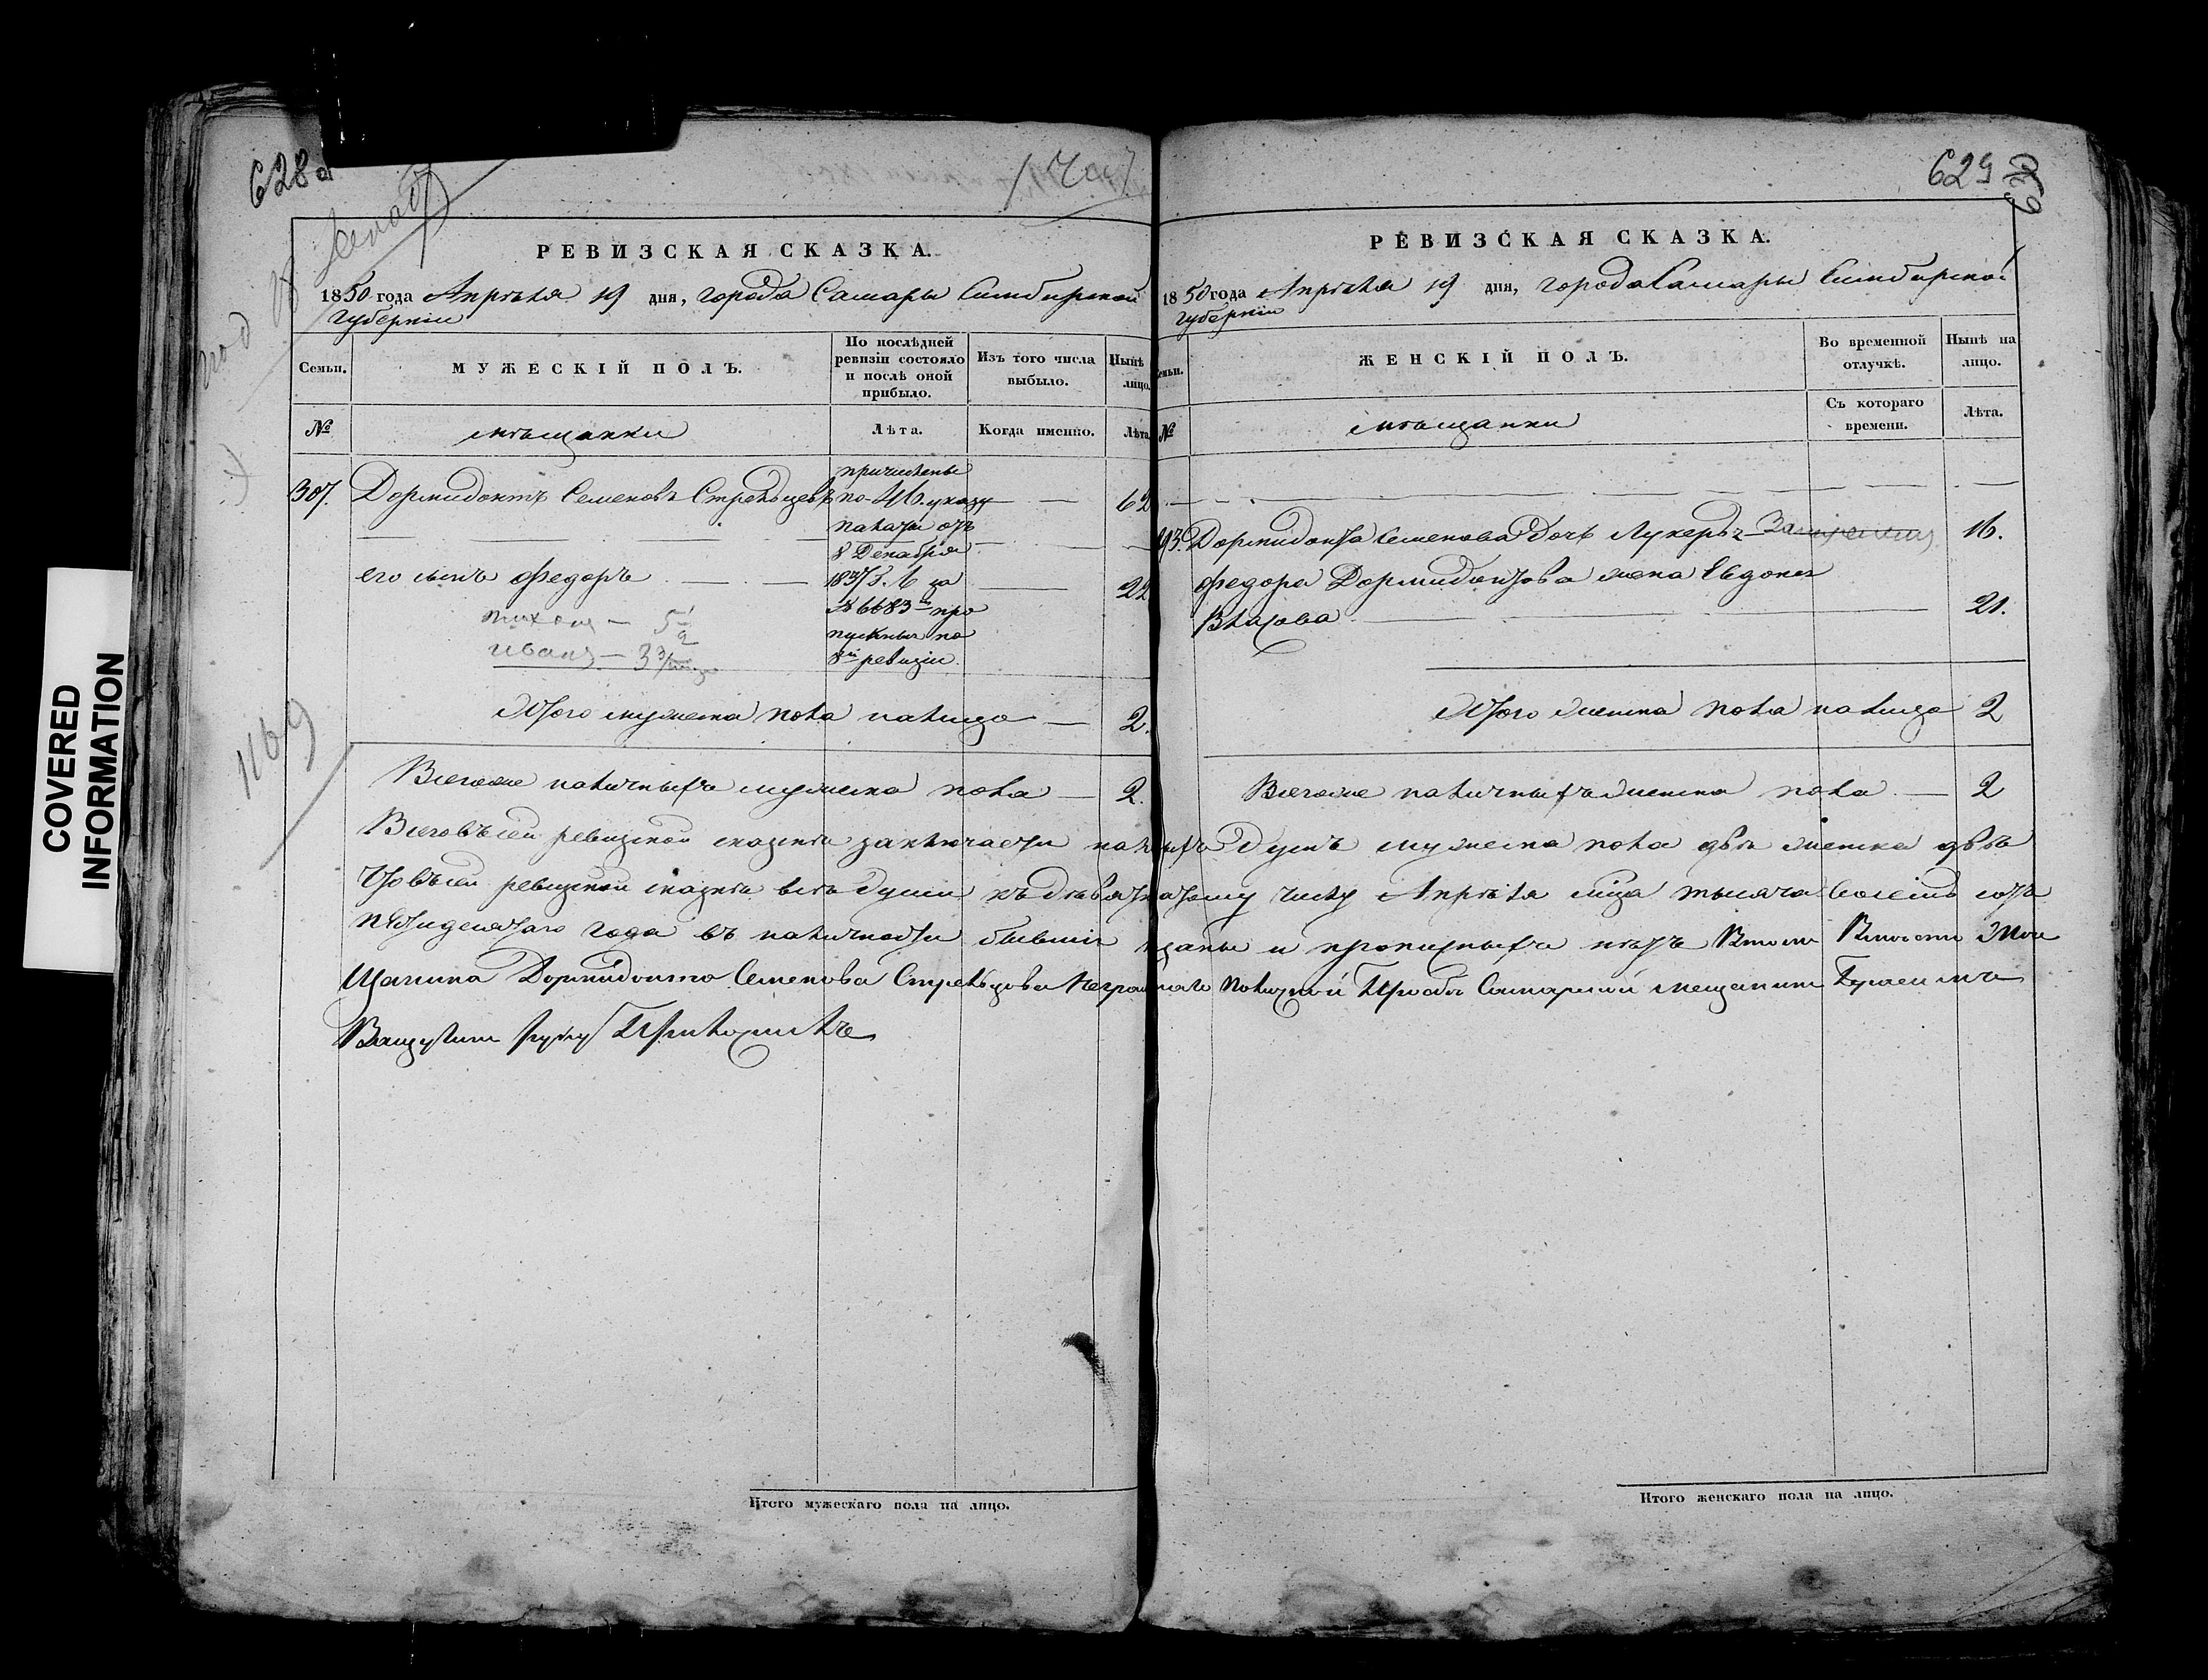 COVERED
INFORMATION
628
РЕВИЗСКАЯ СКАЗКА.
1850 года Апрѣля 19 дня, города Самары Симбирской
губерніи
Семьи.
МУЖЕСКІЙ ПОЛЪ.
По послѣдней
ревизіи состояло
и послѣ оной
прибыло.
Изъ того числа
выбыло.
Нынѣ
лицо.
№
мѣщанки
Лѣта.
Когда именно.
Лѣта
307. Дормидонтъ Семеновъ Стрельцовъ
причислены
по указу
палаты отъ
8 Декабря
за
№ 6683 про
пускные по
8й ревизіи.
62
его сынъ Федоръ 22
Иванъ — 3
Итого мужеска пола налицо — 2.
Всегоже наличныхъ мужеска пола — 2.
1169
629
РЕВИЗСКАЯ СКАЗКА.
1850 года Апрѣля 19 дня, города Самары Симбирской
губерніи
ЖЕНСКІЙ ПОЛЪ.
Во временной
отлучкѣ.
Нынѣ на
лицо.
№
мѣщанки
Съ котораго
времени.
Лѣта.
Дормидонта Семенова дочь Лукерья 16.
Федора Дормидонтова жена Евдокия
Власова 21.
Итого женска пола налицо 2
Всегоже наличныхъ женска пола — 2
Всего въ сей ревизской сказкѣ заключается наличныхъ душъ мужеска пола двѣ женска двѣ
Что въ сей ревизской сказкѣ всѣ души къ девятнатому числу Апрѣля мца тысяча восемь сотъ
пятидесятаго года въ наличности бывшіе поданы и прописныхъ нѣтъ
щанина Дормидонта Семенова Стрельцова неграмотнаго по личной прозбѣ Самарской мещанинъ
руку приложилъ
Итого мужескаго пола на лицо.
Итого женскаго пола на лицо.